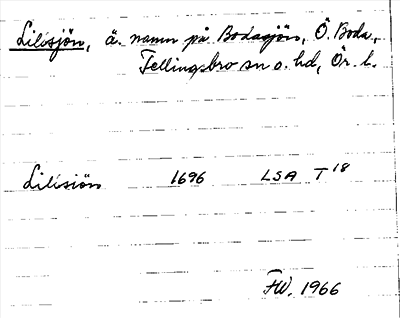 Lilsjön, ä. namn på Bodasjön, Ö. Boda,
Fellingsbro sn o. hd, Ör. l.
Lilsiön 1696 LSA T 18
FW. 1966